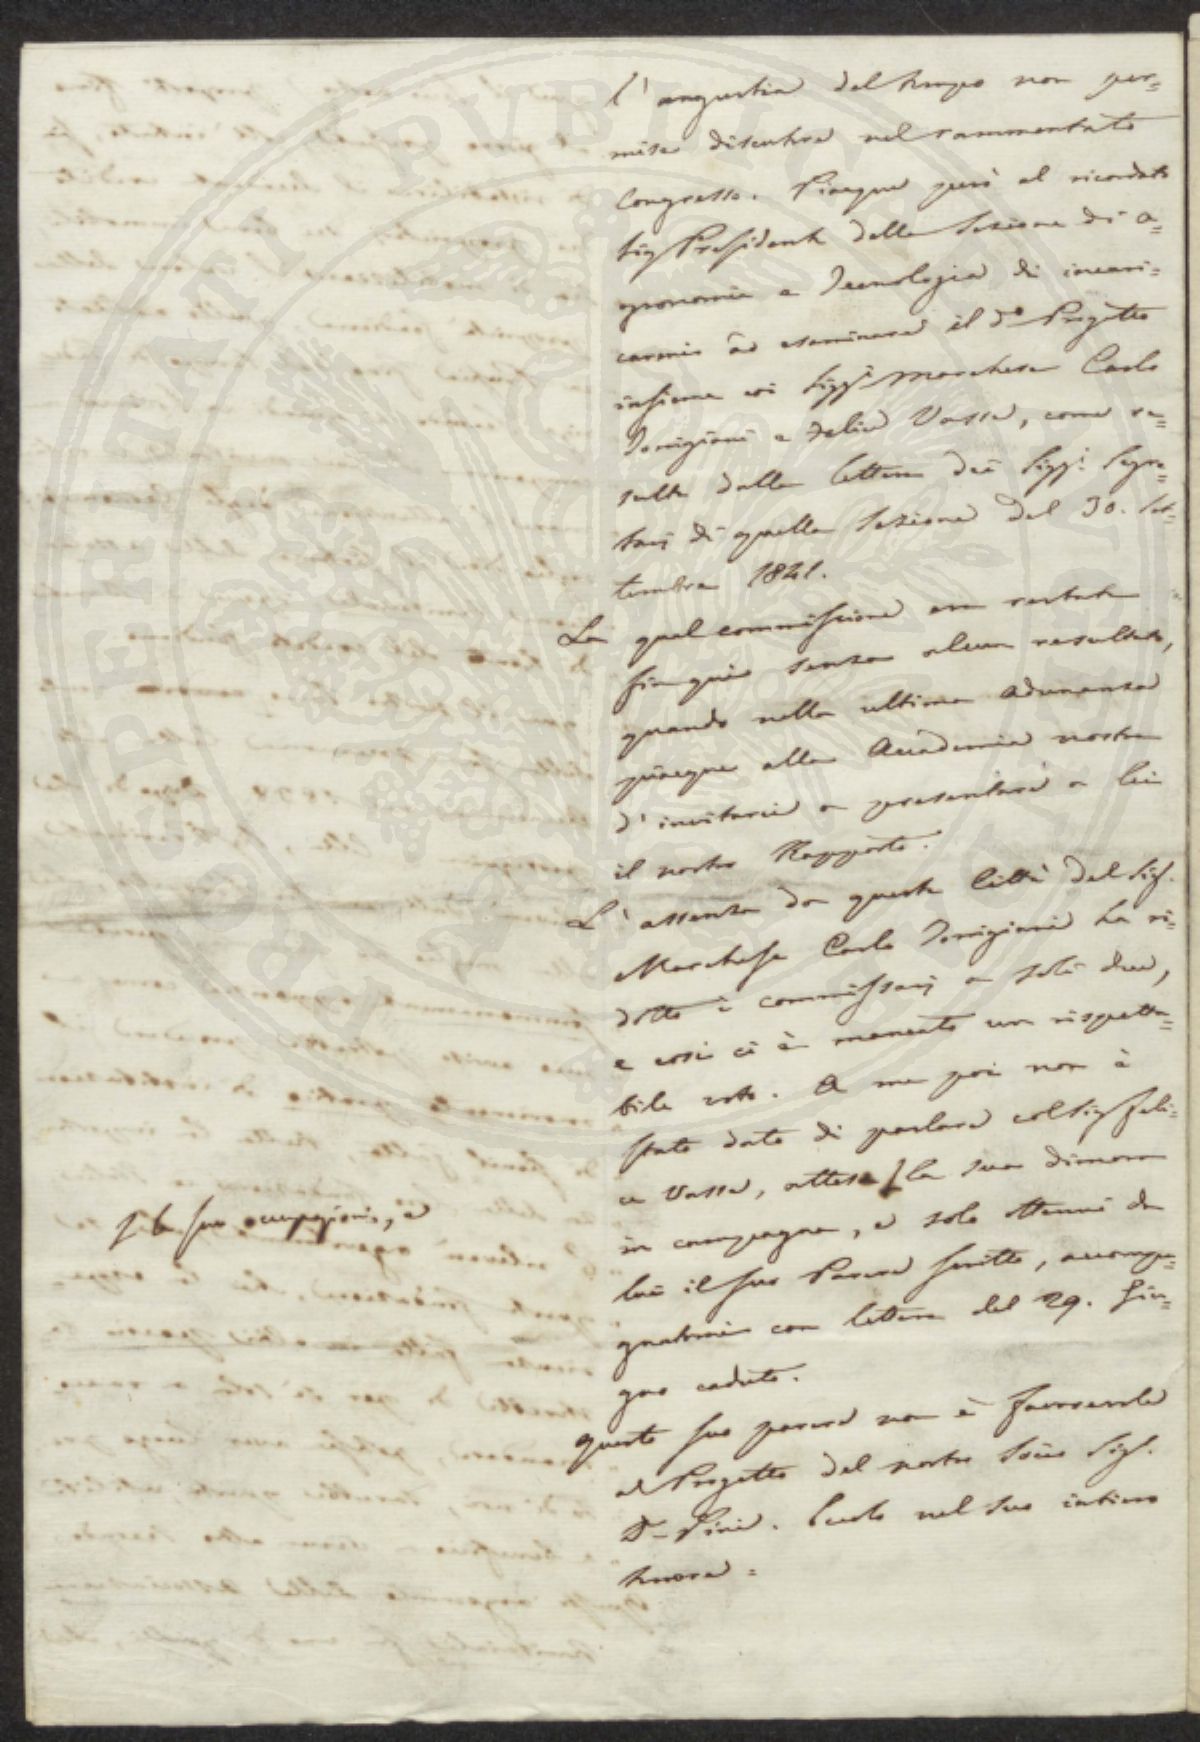 l'angustia del tempo non per=
mise discutere nel rammentato
Congresso. Piacque però al ricordato
Sig Presidente della Sezione di A=
gronomia e Tecnologia di incari=
carmi ad esaminare il do Progetto
insieme coi Sigg.i Marchese Carlo
Torrigiani e Felice Vasse, come re=
sulta dalla lettera dei Sigg.i Segre=
tarj di quella Sezione del 30. Set=
tembre 1841.
La qual commissione era restata
fin qui senza alcun resultato,
quando nella ultima Adunanza
piacque alla Accademia nostra
d'invitarci a presentare a lei
il nostro Rapporto.
L'assenza da questa Città del Sig.
Marchese Carlo Torrigiani ha ri=
dotto i commissarj a soli due,
e così ci è mancato un rispetta=
bile voto. A me poi non è
stato dato di parlare col Sig Feli=
ce Vasse, attesa la sua dimora
le sue occupazioni, e
in campagna, e solo ottenni da
lui il suo Parere scritto, accompa=
gnatomi con lettera del 29. Giu=
gno caduto.
Questo suo parere non è favorevole
al Progetto del nostro Socio Sig.
Dr Pini. Eccolo nel suo intiero
tenore =
PERITATI PVBLIC